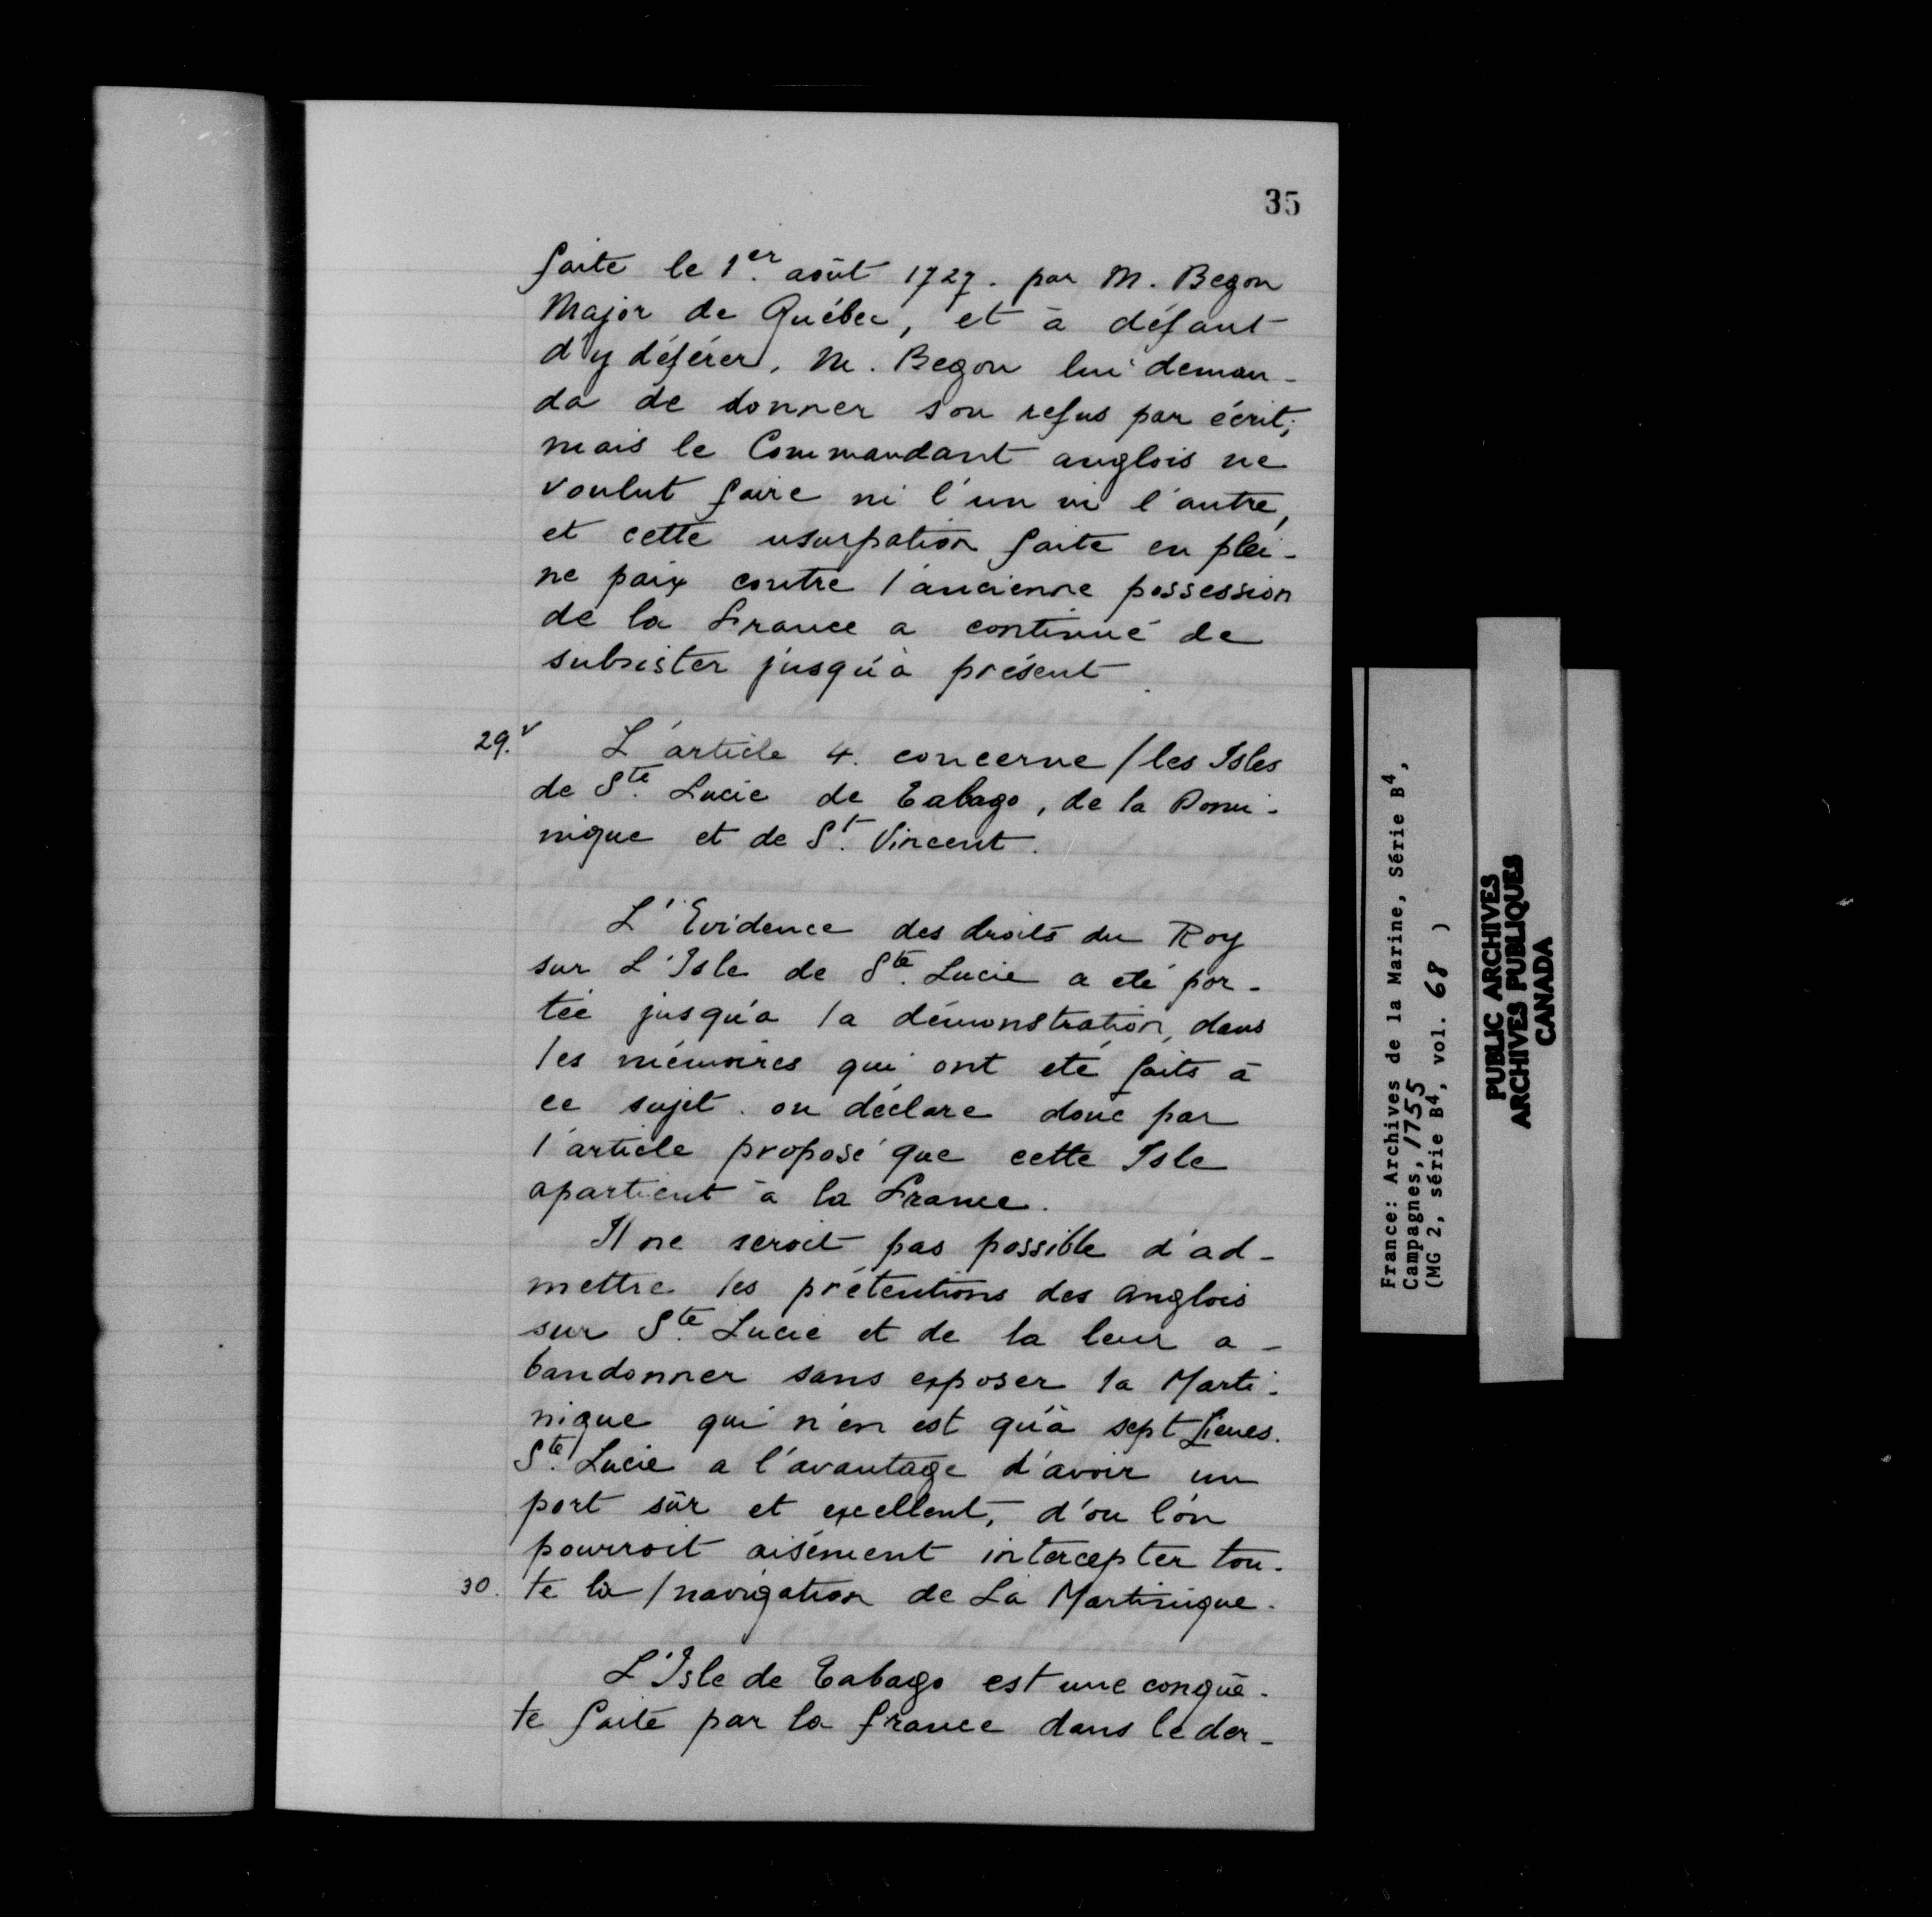 35
faite le 1er. août 1727. par M. Begon
Major de Québec, et à défaut
d'y déférer, M. Begon lui deman-
da de donner son refus par écrit;
mais le Commandant anglois ne
voulut faire ni l'un ni l'autre,
et cette usurpation faite en plei-
ne paix contre l'ancienne possession
de la France a continué de
subsister jusqu'à présent.
29.v L'article 4. concerne / les Isles
de Ste. Lucie de Tabago, de la Domi-
nique et de St. Vincent.
L'Evidence des droits du Roy
sur L'Isle de Ste. Lucie a eté por-
tée jusqu'a la démonstration, dans
les mémoires qui ont eté faits à
ce sujet. on déclare donc par
l'article proposé que cette Isle
apartient à la France.
Il ne seroit pas possible d'ad-
mettre les prétentions des anglois
sur Ste. Lucie et de la leur a-
bandonner sans exposer la Marti-
nique qui n'en est qu'à sept Lieues.
Ste. Lucie a l'avantage d'avoir un
port sûr et excellent, d'ou l'on
pourroit aisément intercepter tou-
30. te la / navigation de La Martinique.
L'Isle de Tabago est une conquê-
te faite par la france dans le der-
France: Archives de la Marine, Série B4,
Campagnes, 1755
(MG 2, série B4, vol. 68 )
PUBLIC ARCHIVES
ARCHIVES PUBLIQUES
CANADA